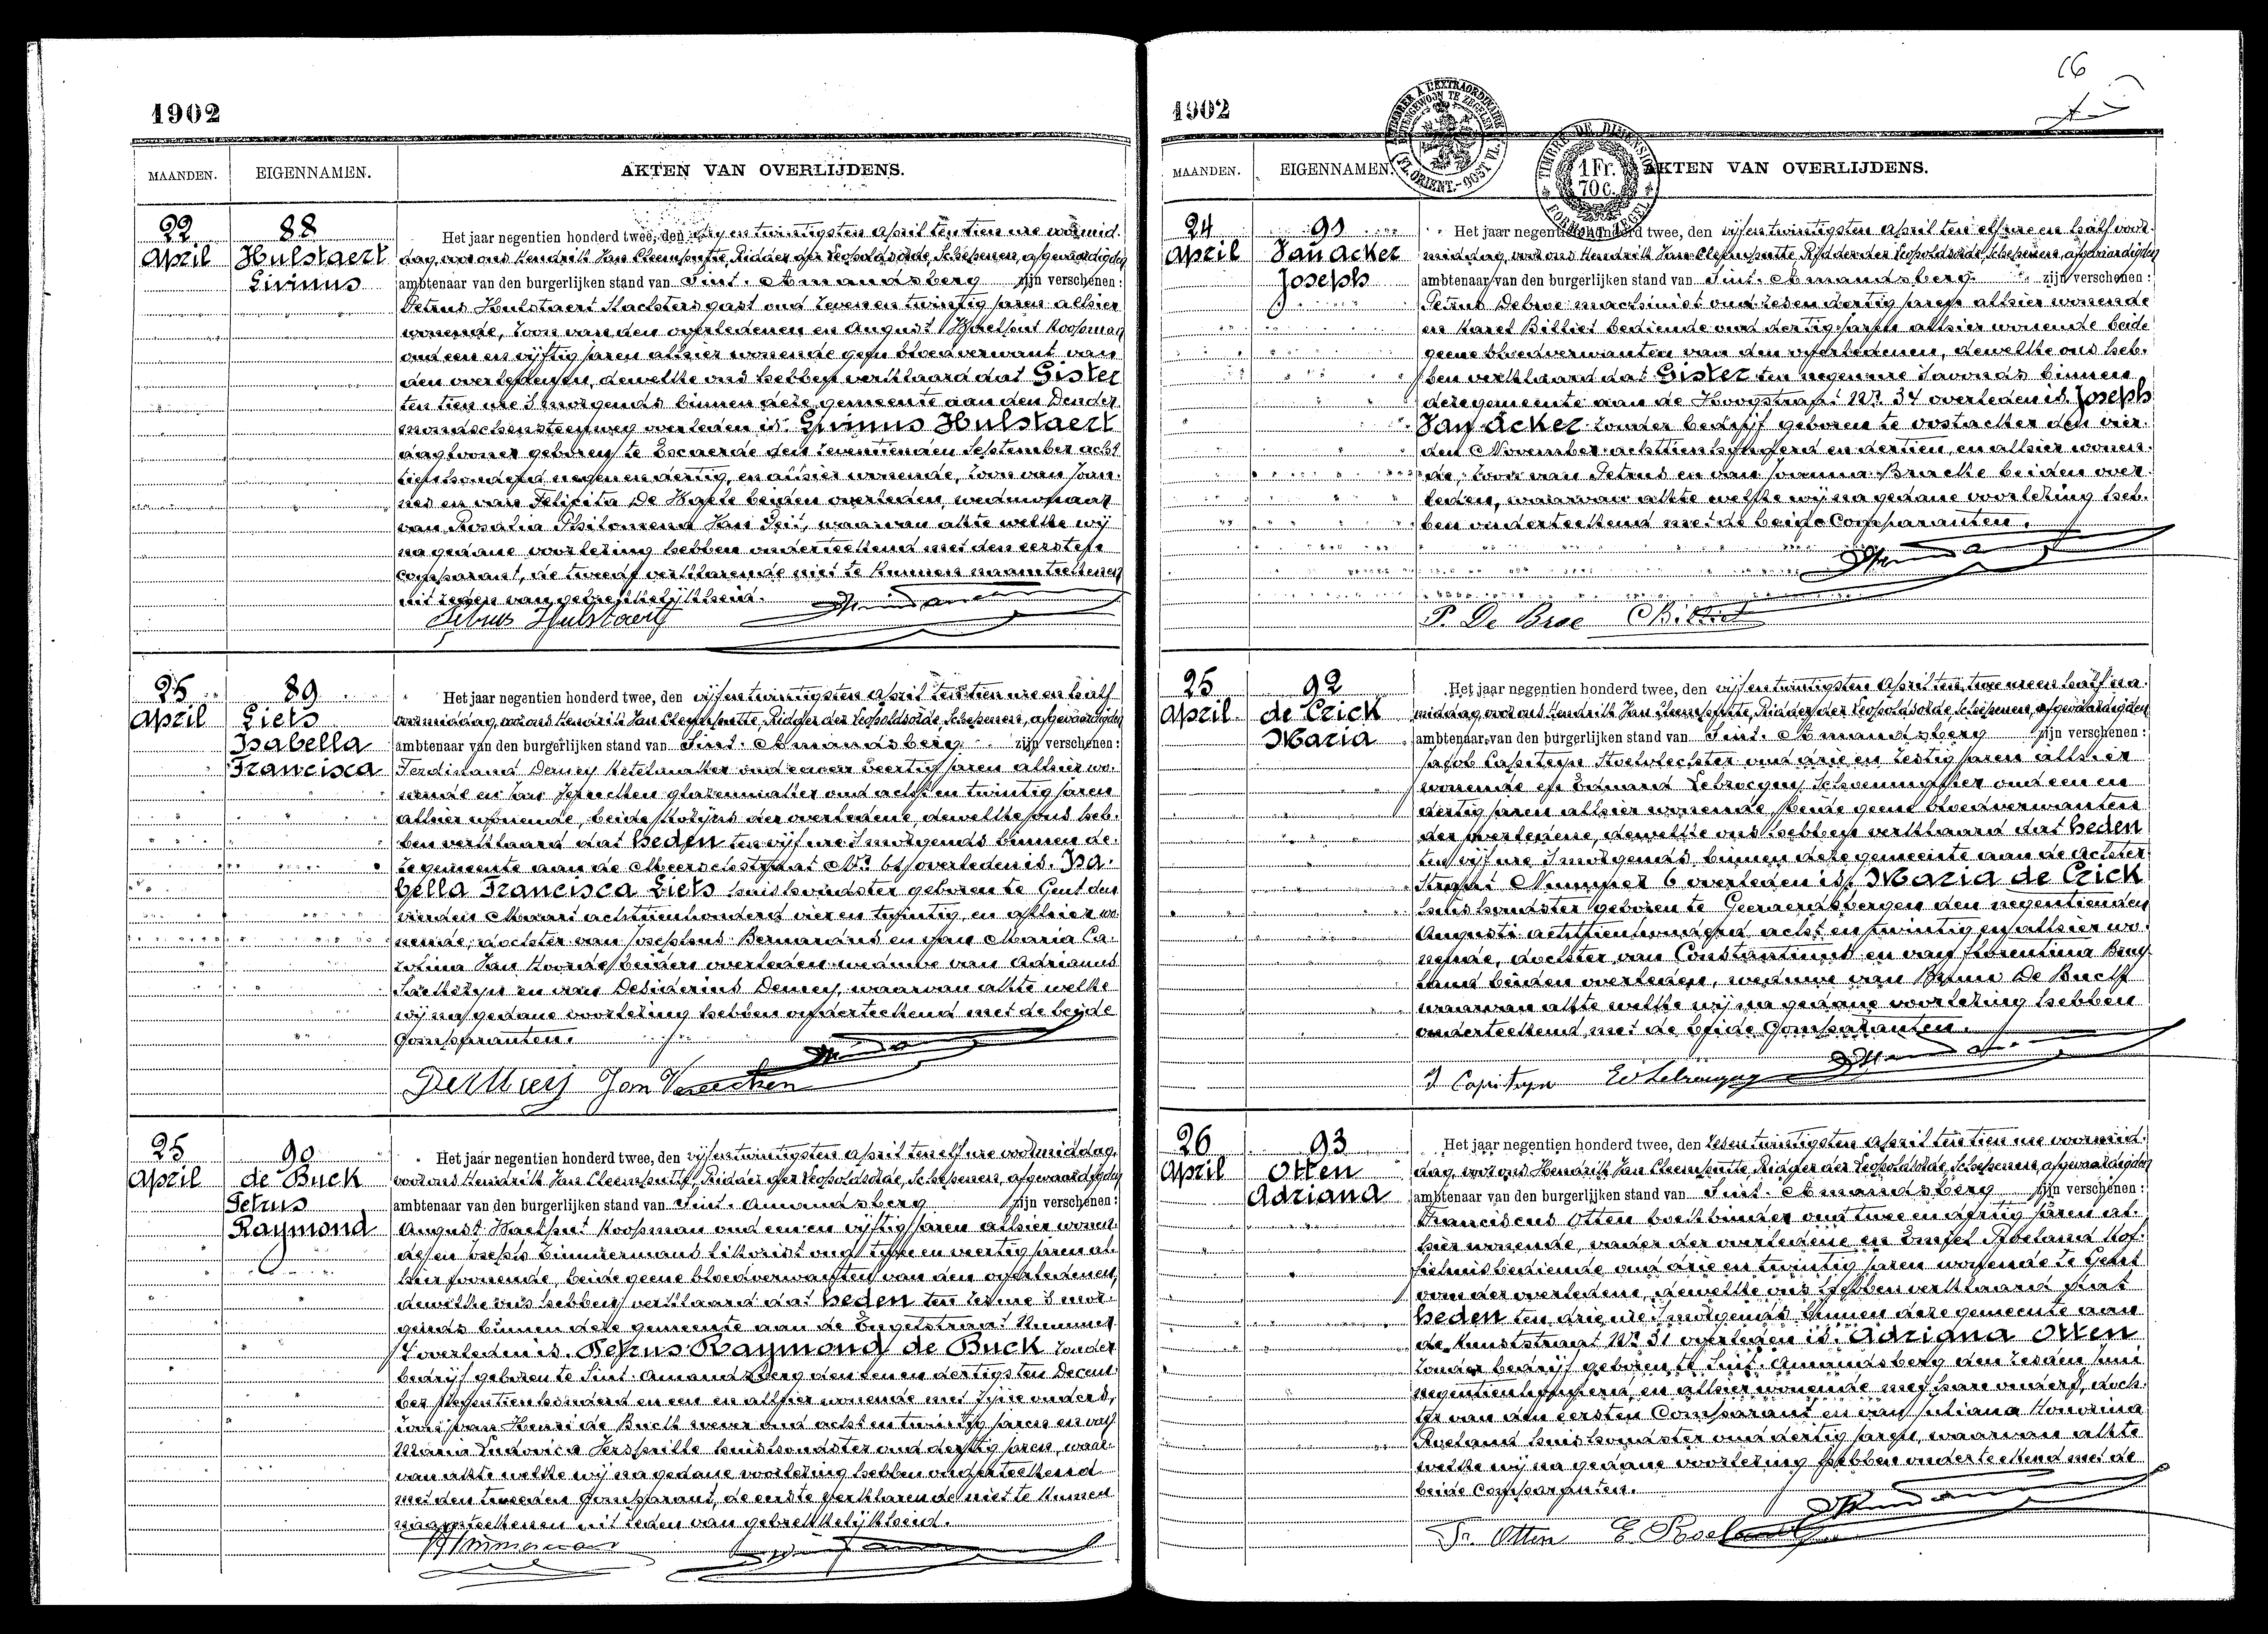 1902
MAANDEN.
EIGENNAMEN.
AKTEN VAN OVERLIJDENS.
22
April
88
Hulstaert
Livinus
Het jaar negentien honderd twee, den ten tien ure voormid-
dag, voor ons Hendrik Jan Ridder der Leopoldsorde, Schepenen, afgevaardigden
ambtenaar van den burgerlijken stand van Sint-Amandsberg zijn verschenen:
Petrus Hulstaert oud zeven en twintig jaren alhier
wonende, zoon van den overledenen en August Koopman
oud een en vijftig jaren alhier wonende geen bloedverwant van
den overledenen, dewelke ons hebben verklaard dat Gister
ten tien ure 's morgends binnen deze gemeente aan den Dender-
mondschensteenweg overleden is. Livinus Hulstaert
daglooner geboren te den zeventienden September acht-
tien honderd negen en dertig, en alhier wonende, zoon van Joan-
nes en van Felicita De beiden overleden, weduwnaar
van Rosalia Philomena Van waarvan akte welke wij
na gedane voorlezing hebben onderteekend met den eersten
comparant, de tweede verklarende niet te kunnen naamteekenen
uit reden van gebrekkelijkheid.
Petrus Hulstaert
25
April
89
Liels
Isabella
Francisca
Het jaar negentien honderd twee, den vijfentwintigsten April ten tien ure en half
voormiddag, voor ons Hendrik Jan Ridder der Leopoldsorde, Schepenen, afgevaardigden
ambtenaar van den burgerlijken stand van Sint-Amandsberg zijn verschenen:
Ferdinand ketelmaker oud een en veertig jaren alhier wo-
nende en Jan oud acht en twintig jaren
alhier wonende, beide der overledene, dewelke ons heb-
ben verklaard dat heden ten vijf ure 's morgends binnen de-
ze gemeente aan de overleden is. Isa-
bella Francisca Liels huishoudster geboren te Gent den
vierden Maart achttienhonderd vier en twintig, en alhier wo-
nende, dochter van Josephus Bernardus en van Maria Ca-
rolina Van beiden overleden weduwe van Adrianus
en van Desiderius waarvan akte welke
wij na gedane voorlezing hebben onderteekend met de beide
Comparanten.
25
April
90
de Buck
Petrus
Raymond
Het jaar negentien honderd twee, den vijfentwintigsten April ten elf ure voormiddag,
voor ons Hendrik Jan Ridder der Leopoldsorde, Schepenen, afgevaardigden
ambtenaar van den burgerlijken stand van Sint-Amandsberg zijn verschenen:
August Koopman oud een en vijftig jaren alhier wonen-
de en Joseph Zimmermans oud twee en veertig jaren al-
hier wonende, beide geene bloedverwanten van den overledenen,
dewelke ons hebben verklaard dat heden ten ure 's mor-
gends binnen deze gemeente aan de Engelstraat Nummer
overleden is. Petrus Raymond de Buck zonder
bedrijf geboren te Sint-Amandsberg den een en dertigsten Decem-
ber negentienhonderd en een en alhier wonende met zijne ouders,
zoon van Henri de Buck wever oud acht en twintig jaren en van
Maria Ludovica huishoudster oud dertig jaren, waar-
van akte welke wij na gedane voorlezing hebben onderteekend
met den tweeden Comparant, de eerste verklarende niet te kunnen
naamteekenen uit reden van gebrekkelijkheid.
1902
MAANDEN.
EIGENNAMEN.
AKTEN VAN OVERLIJDENS.
1 Fr.
70 c.
24
April
91
Van Acker
Joseph
Het jaar negentien honderd twee, den vijfentwintigsten April ten elf ure en half voor-
middag, voor ons Hendrik Jan Ridder der Leopoldsorde, Schepenen, afgevaardigden
ambtenaar van den burgerlijken stand van Sint-Amandsberg zijn verschenen:
Petrus Debroe machinist oud zesen dertig jaren alhier wonende
en Karel Billiet bediende oud dertig jaren alhier wonende beide
geene bloedverwanten van den overledenen, dewelke ons heb-
ben verklaard dat Gister ten negen ure 's avonds binnen
deze gemeente aan de Hoogstraat Nr. 34 overleden is. Joseph
Van Acker zonder bedrijf geboren te Oostacker den vier-
den November achttienhonderd en dertien, en alhier wonen-
de, zoon van Petrus en van Joanna Bracke beiden over-
leden, waarvan akte welke wij na gedane voorlezing heb-
ben onderteekend met de beide Comparanten.
P. De Broe
25
April
92
de Crick
Maria
Het jaar negentien honderd twee, den vijfentwintigsten April ten twee ure en half na-
middag, voor ons Hendrik Jan Ridder der Leopoldsorde, Schepenen, afgevaardigden
ambtenaar van den burgerlijken stand van Sint-Amandsberg zijn verschenen:
Jacob Capiteyn oud drie en zestig jaren alhier
wonende en Eduard oud een en
dertig jaren alhier wonende beide geene bloedverwanten
der overledene, dewelke ons hebben verklaard dat heden
ten vijf ure 's morgends binnen deze gemeente aan de Achter-
straat Nummer 6 overleden is. Maria de Crick
huishoudster geboren te Geeraerdsbergen den negentienden
Augusti achttienhonderd acht en twintig en alhier wo-
nende, dochter van Constantinus en van Florentina
beiden overleden, weduwe van De Buck
waarvan akte welke wij na gedane voorlezing hebben
onderteekend met de beide Comparanten.
J Capiteyn
26
April
93
Otten
Adriana
Het jaar negentien honderd twee, den zesentwintigsten April ten tien ure voormid-
dag, voor ons Hendrik Jan Ridder der Leopoldsorde, Schepenen, afgevaardigden
ambtenaar van den burgerlijken stand van Sint-Amandsberg zijn verschenen:
Franciscus Otten boekbinder oud twee en dertig jaren al-
hier wonende, vader der overledene en Roeland
bediende oud drie en twintig jaren wonende te Gent
oom der overledene, dewelke ons hebben verklaard dat
heden ten drie ure 's morgends binnen deze gemeente aan
de Kunststraat Nr. 31 overleden is. Adriana Otten
zonder bedrijf geboren te Sint-Amandsberg den zesden Juni
negentienhonderd, en alhier wonende met hare ouders, doch-
ter van den eersten Comparant en van Juliana Honorina
Roeland huishoudster oud dertig jaren, waarvan akte
welke wij na gedane voorlezing hebben onderteekend met de
beide Comparanten.
Fr. Otten E. Roeland